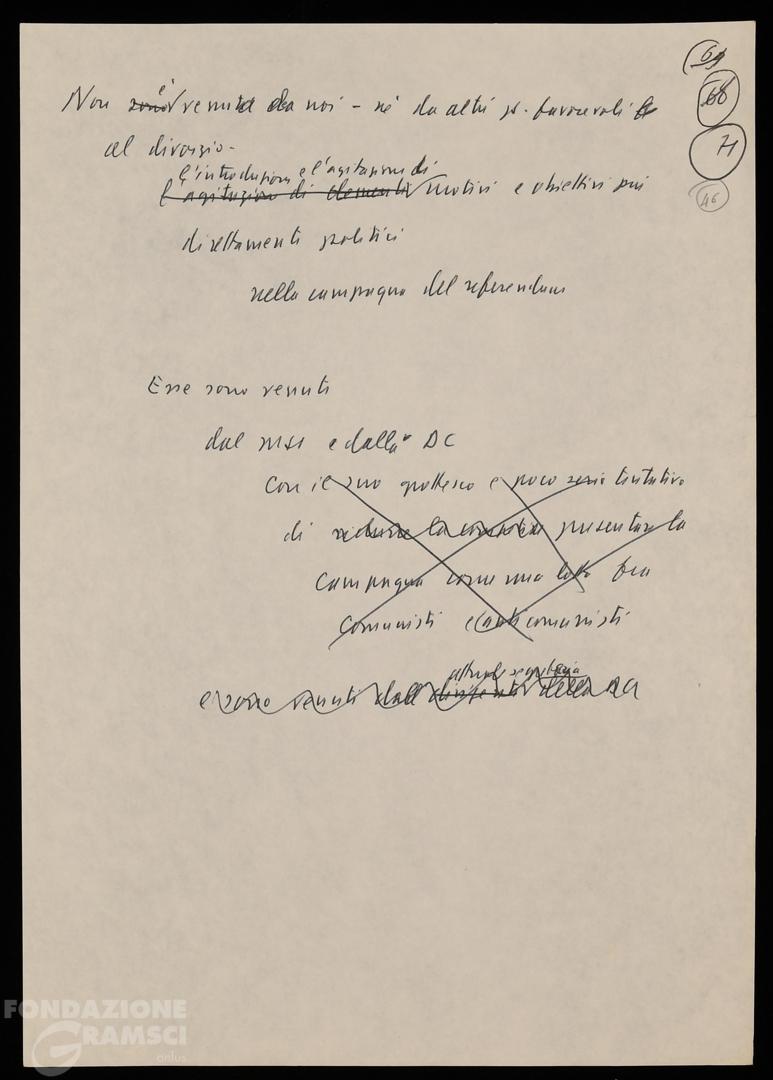 69
68
71
46
Non sono è venuta da noi - né da altri p. favorevoli
al divorzio -
l'introduzione e l'agitazione di
l'agitazione di elementi motivi e obiettivi più
direttamenti politici
nella campagna del referendum
Essi sono venuti
dal MSI e dalla DC
con il suo grottesco e poco serio tentativo
di ridurre la presentare la
campagna come una lotta fra
comunisti e anticomunisti
attuale segreteria
e sono venuti dall della DC
FONDAZIONE
GRAMSCI
onlus